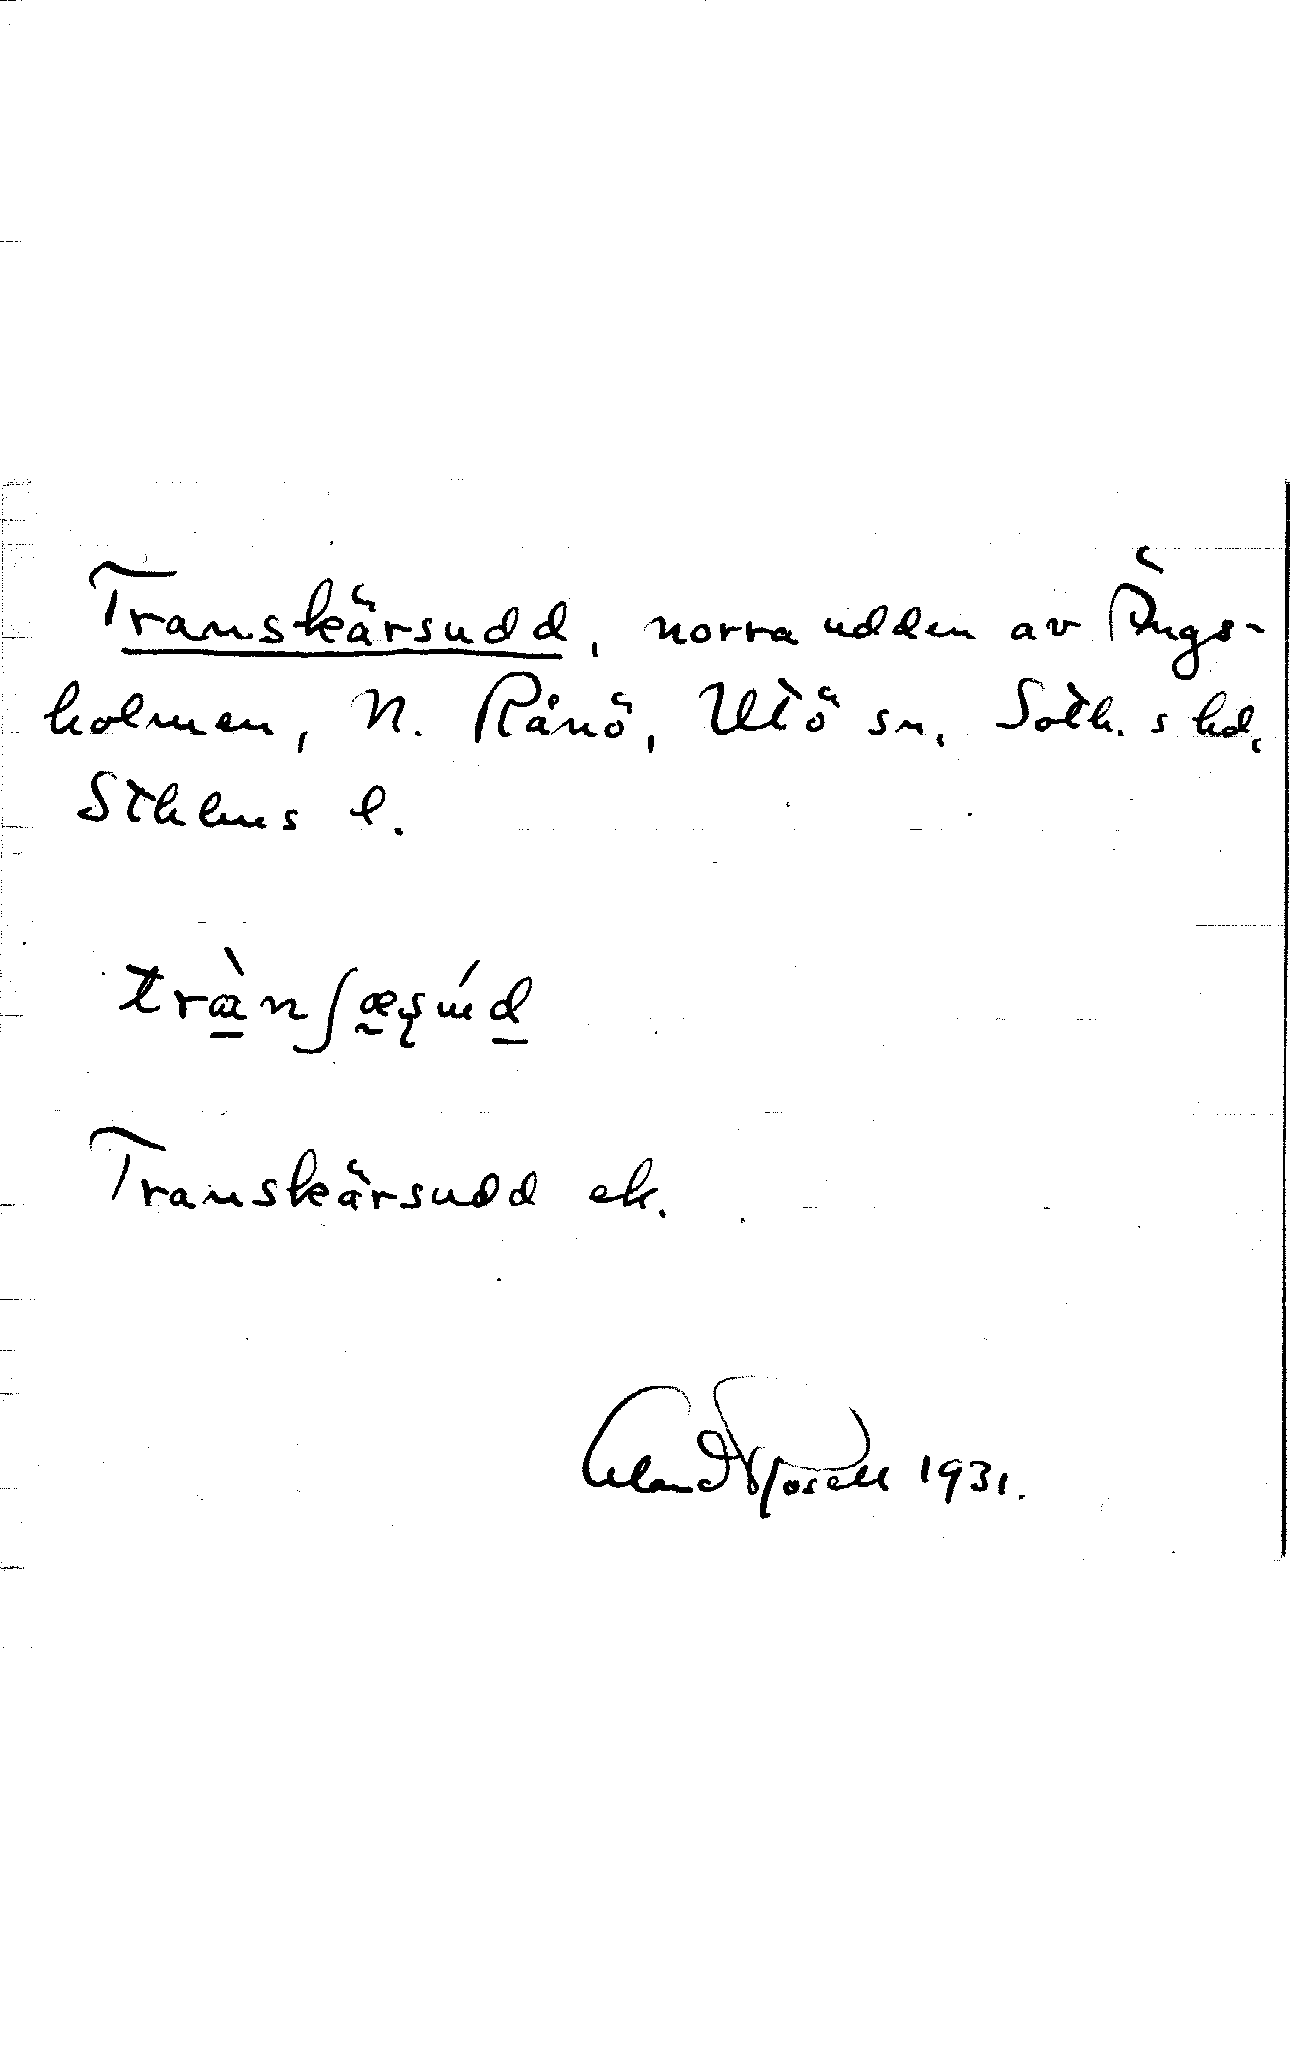 Transkärsudd, norra udden av Ängs-
holmen, N. Rånö, Utö sn, Soth. s hd,
Sthlms l.
trànʃæʂúd
Transkärsudd ek.
Erland Rosell 1931.